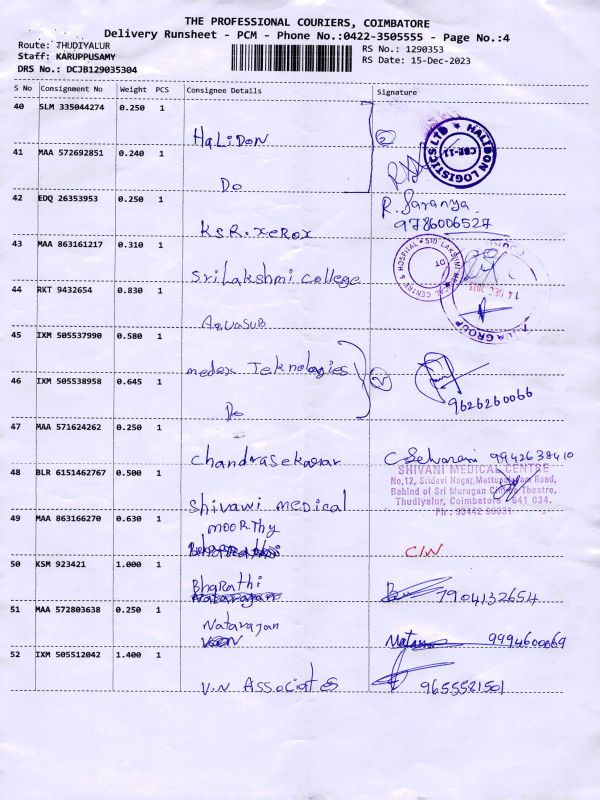 THE PROFESSIONAL COURIERS, COIMBATORE
Delivery Runsheet - PCM - Phone No.:0422-3505555 - Page No.:4
Route: THUDIYALUR
Staff: KARUPPUSAMY
DRS No.: DCJB129035304
RS No.: 1290353
RS Date: 15-Dec-2023
S No Consignment No Weight PCS Consignee Details Signature
40 SLM 335044274 0.250 1
HALIDON
2
HALIDON LOGISTICS LTD
CBE-11
41 MAA 572692851 0.240 1
Do
42 EDQ 26353953 0.250 1
KSR. XEROX
R. Saranya
9786006527
43 MAA 863161217 0.310 1
Sri Lakshmi College
44 RKT 9432654 0.830 1
AQUASUB
14 DEC 2023
45 IXM 505537990 0.580 1
medox Teknologies
2
46 IXM 505538958 0.645 1
Do
9626260066
47 MAA 571624262 0.250 1
Chandrasekarar
C Selvarani 9942638410
48 BLR 6151462767 0.500 1
Shivawi Medical
SHIVANI MEDICAL CENTRE
No,12, Sridevi Nagar, Mettupalayam Road,
Behind of Sri Murugan Cinema Theatre,
Thudiyalur, Coimbatore - 641 034.
Ph : 93442 90031
49 MAA 863166270 0.630 1
mooRThy
C/N
50 KSM 923421 1.000 1
Bharathi
7904132654
51 MAA 572803638 0.250 1
Natarajan
9994600069
52 IXM 505512042 1.400 1
V.N Associates
9655521501